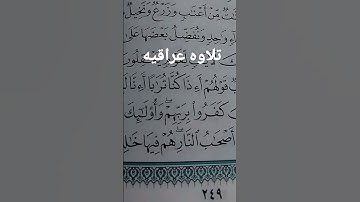 ـت مّن أعنٰب وزرع ونخيل
ـاء وٰحد ونفضّل بعضها على
تلاوه عراقيه
قولهم أءذا كنّا ترٰبا أءنّا
كفروا بربّهم وأولٰئك
أصحٰب النّار هم فيها خٰلـ
٢٤٩